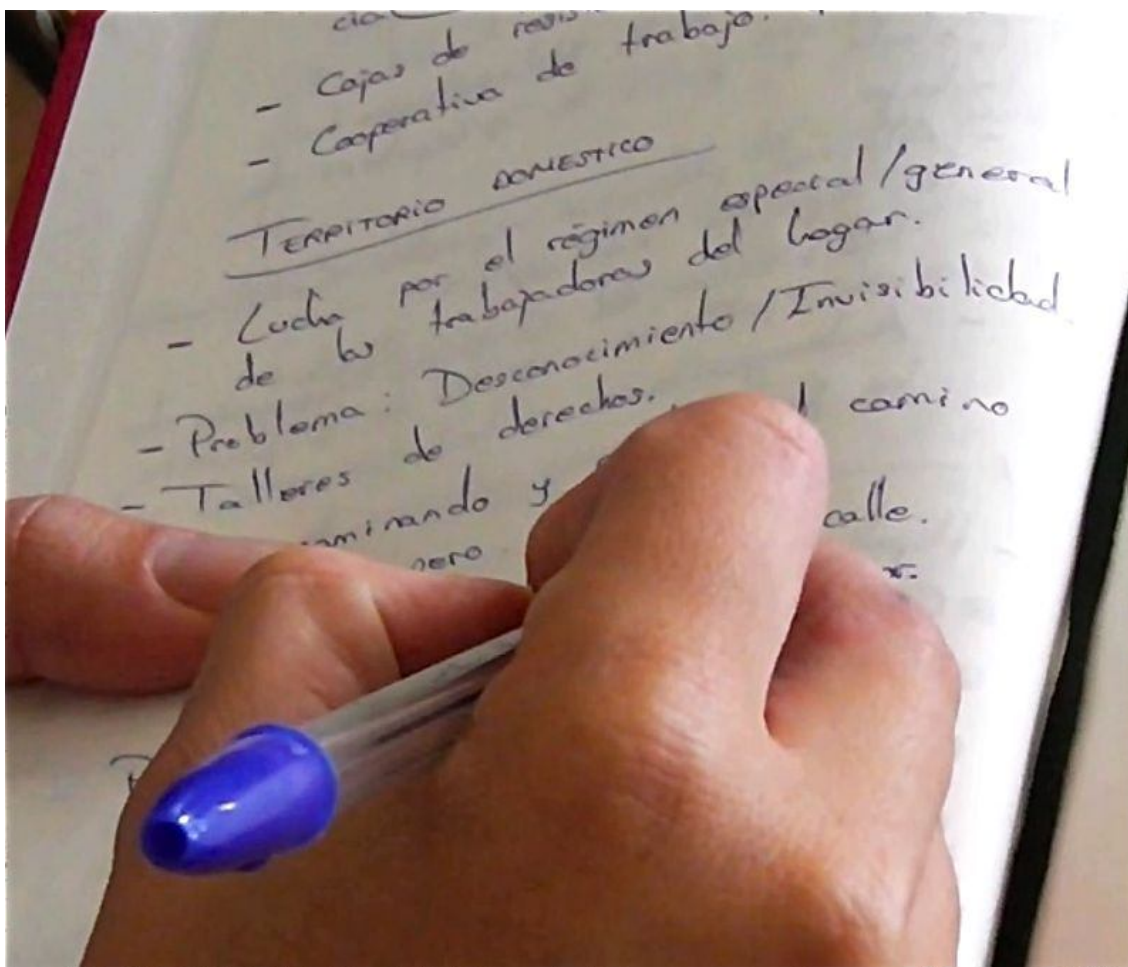 - Cajas de
- Cooperativa de trabajo.
TERRITORIO DOMESTICO
- Lucha por el régimen especial/general
de las trabajadoras del hogar.
- Problema: Desconocimiento/Invisibilidad
- Talleres de derechos.
camino
y
calle.